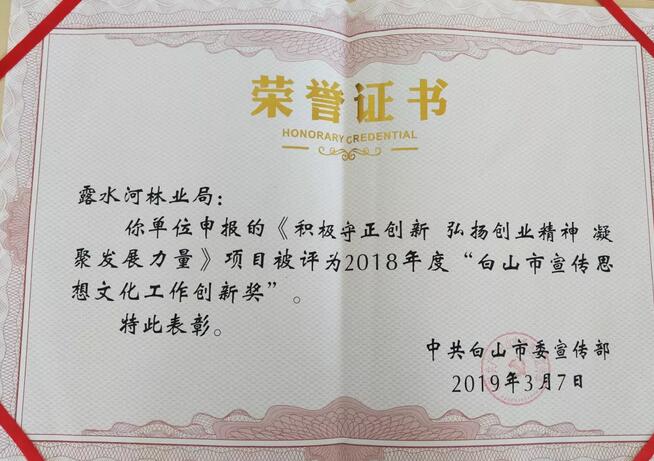 荣誉证书
HONORARY CREDENTIAL
露水河林业局：
你单位申报的《积极守正创新 弘扬创业精神 凝
聚发展力量》项目被评为2018年度“白山市宣传思
想文化工作创新奖”。
特此表彰。
中共白山市委宣传部
2019年3月7日